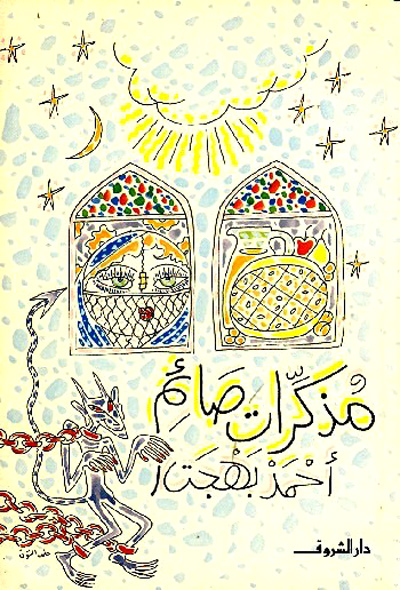 مُذكِّرات صَائِم
أحْمَدْ بَهْجَت
دار الشروق